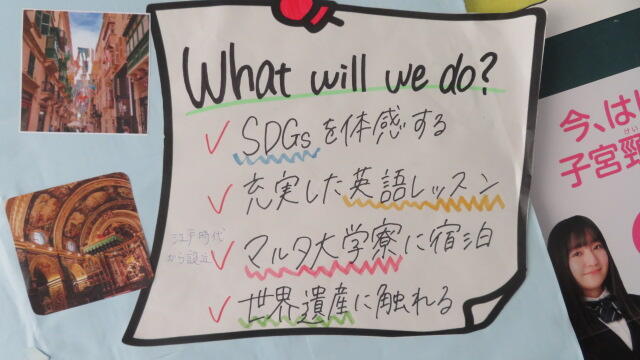 What will we do?
✓ SDGsを体感する
✓ 充実した英語レッスン
✓ マルタ大学寮に宿泊
✓ 世界遺産に触れる
江戸時代
から
今、は
子宮頸
けい